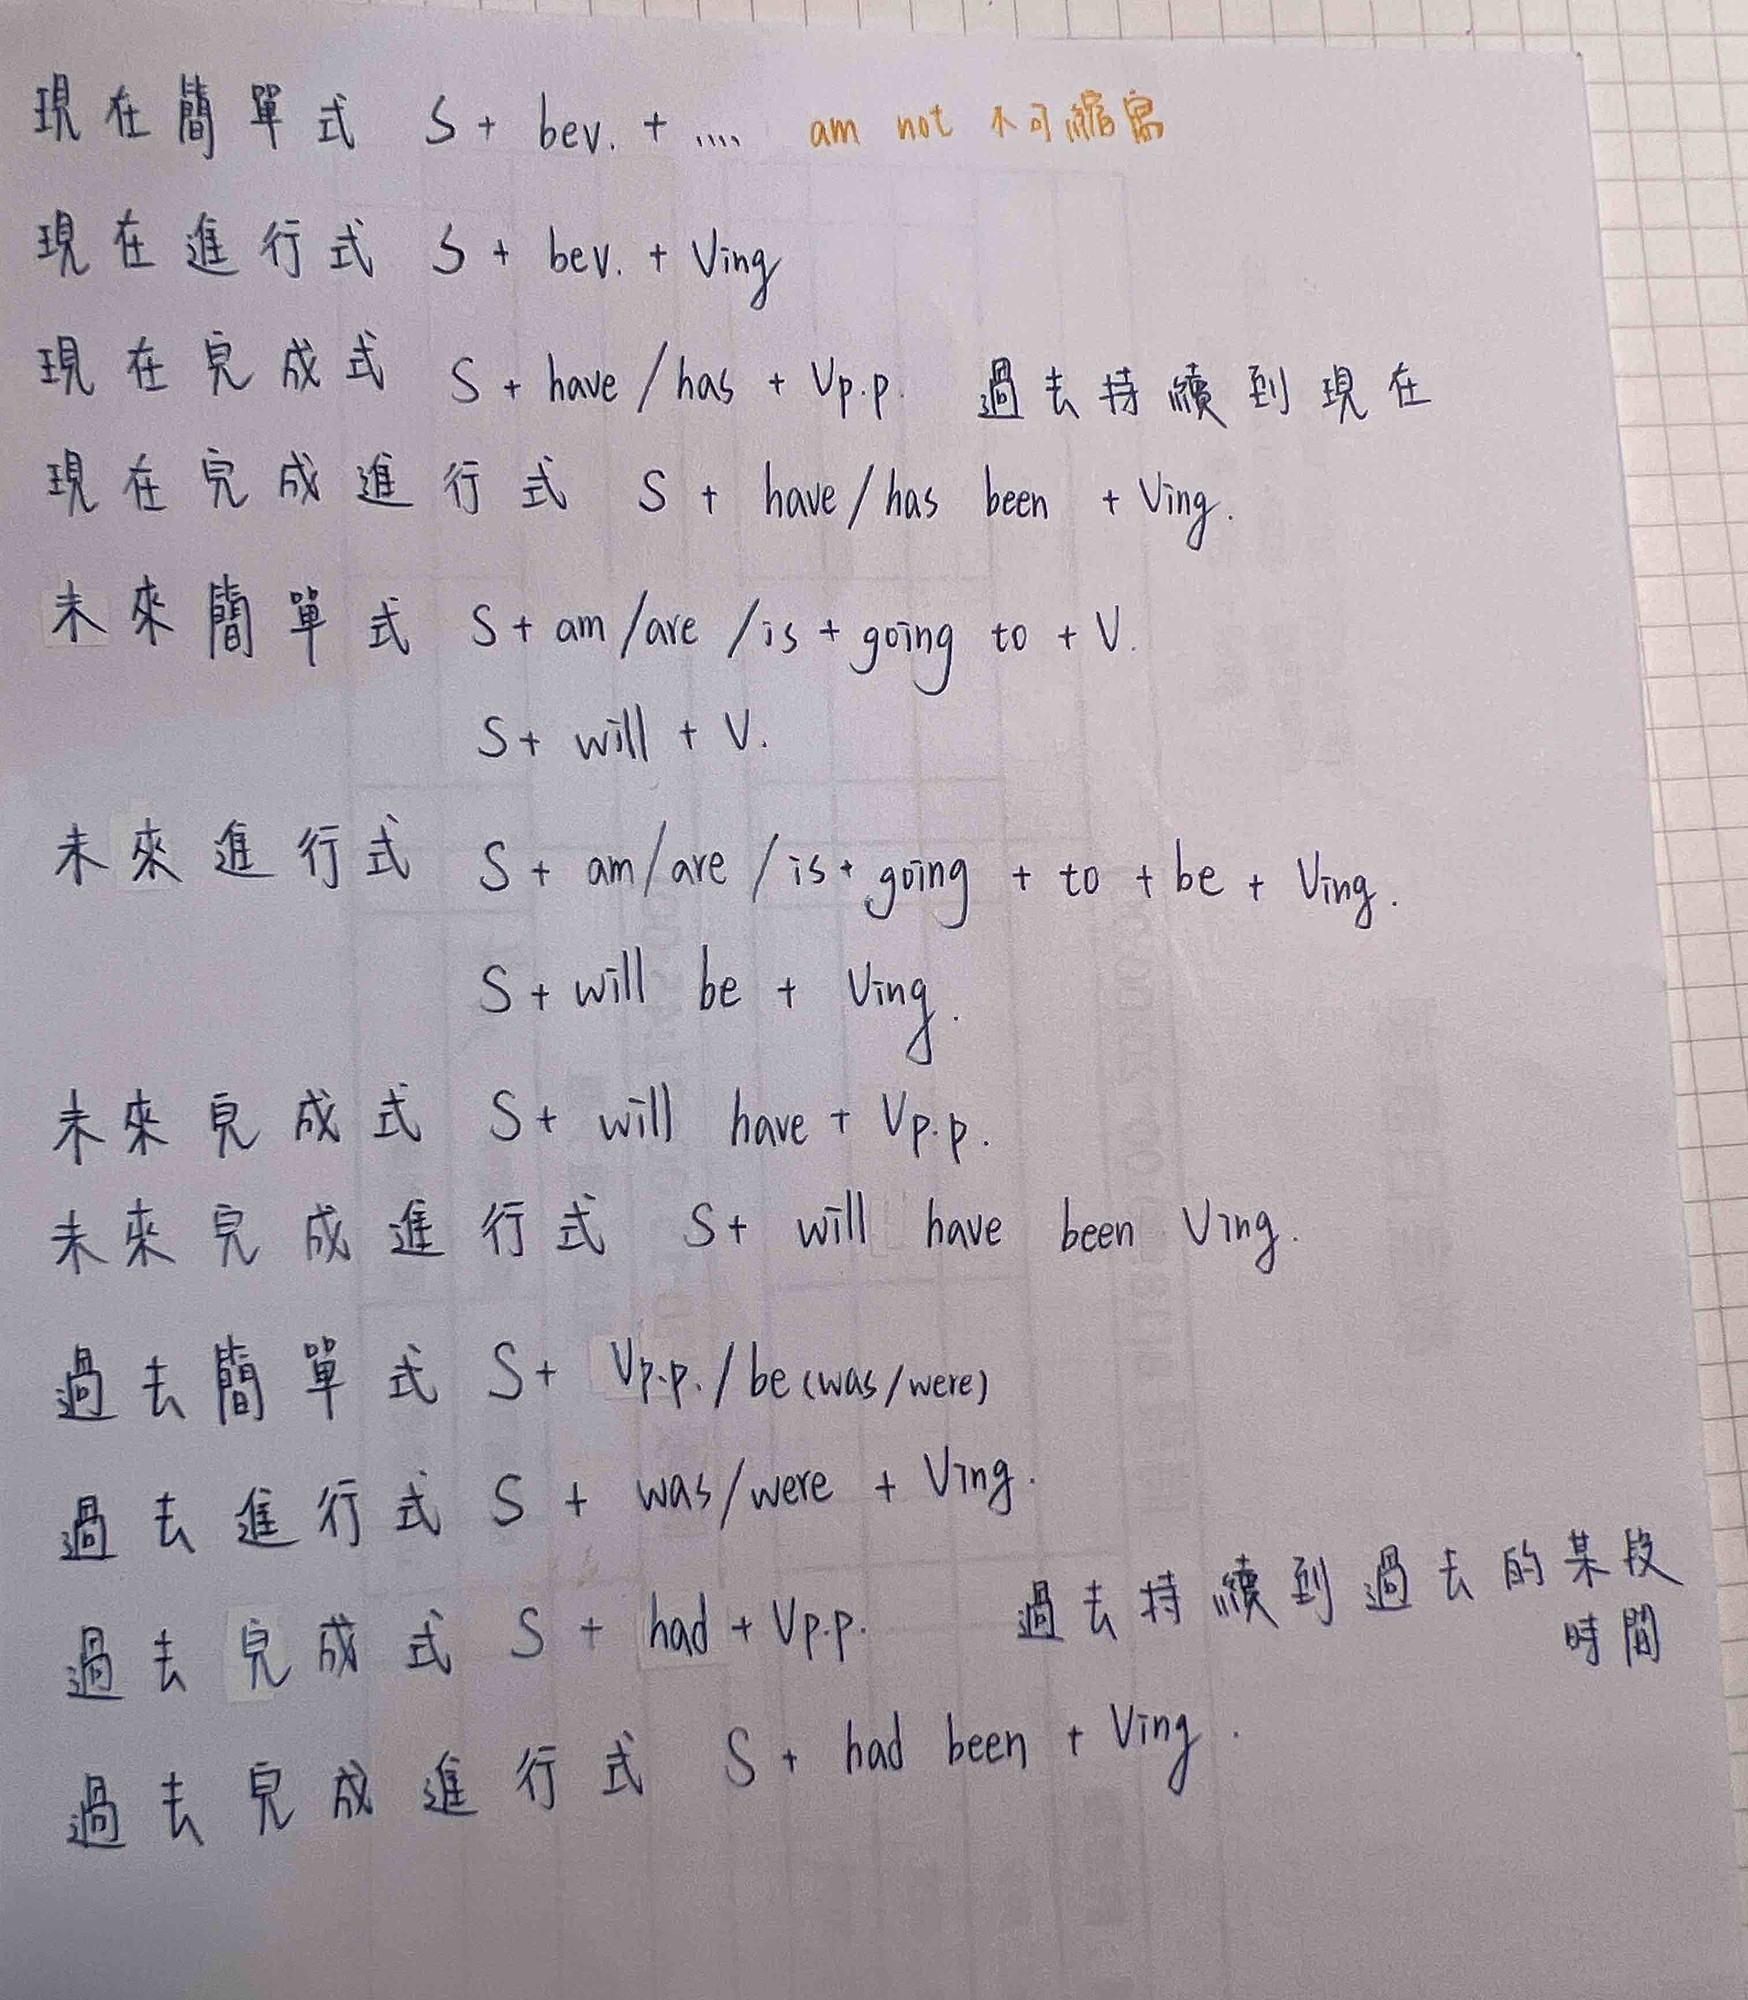 現在簡單式 S + bev. + .... am not 不可縮寫
現在進行式 S + bev. + Ving
現在完成式 S + have / has + Vp.p. 過去持續到現在
現在完成進行式 S + have / has been + Ving.
未來簡單式 S + am / are / is + going to + V.
S + will + V.
未來進行式 S + am / are / is + going + to + be + Ving.
S + will be + Ving.
未來完成式 S + will have + Vp.p.
未來完成進行式 S + will have been Ving.
過去簡單式 S + Vp.p. / be (was / were)
過去進行式 S + was / were + Ving.
過去完成式 S + had + Vp.p. 過去持續到過去的某段
時間
過去完成進行式 S + had been + Ving.